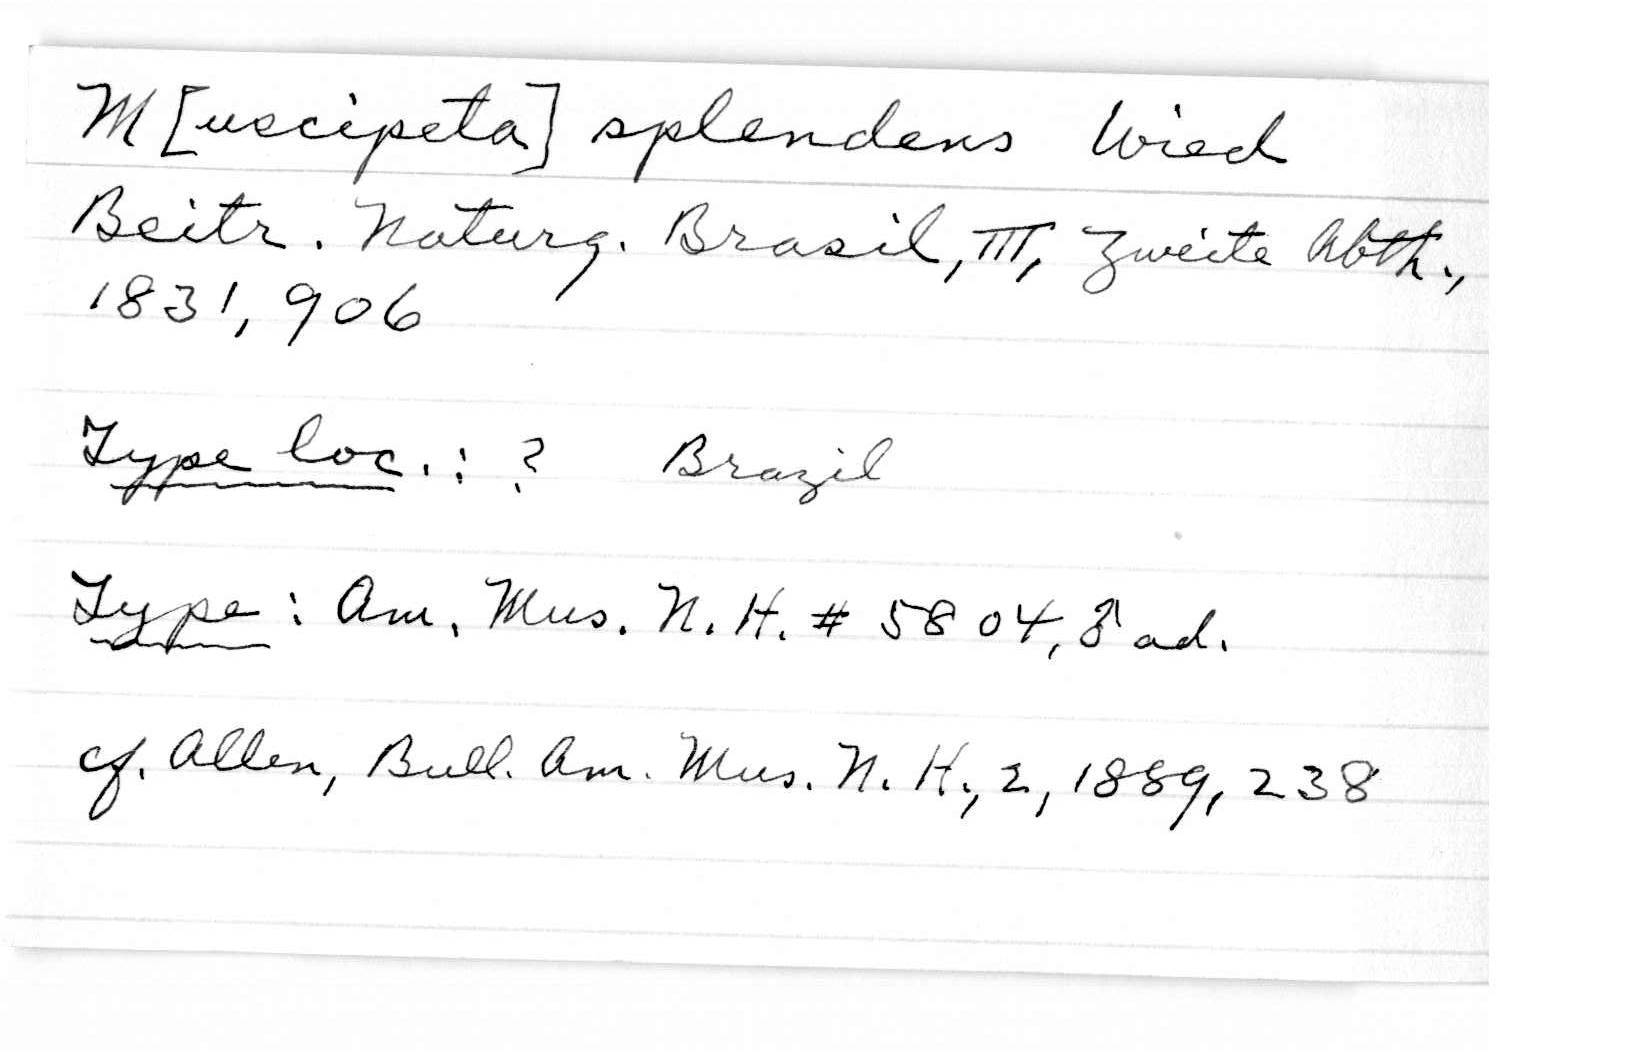 M[uscipeta] splendens Wied
Beitr. Naturg. Brasil, III, Zweite Abth.,
1831, 906
Type loc.: ? Brazil
Type: Am. Mus. N. H. # 5804, ♂ ad.
cf. Allen, Bull. Am. Mus. N. H., 2, 1889, 238